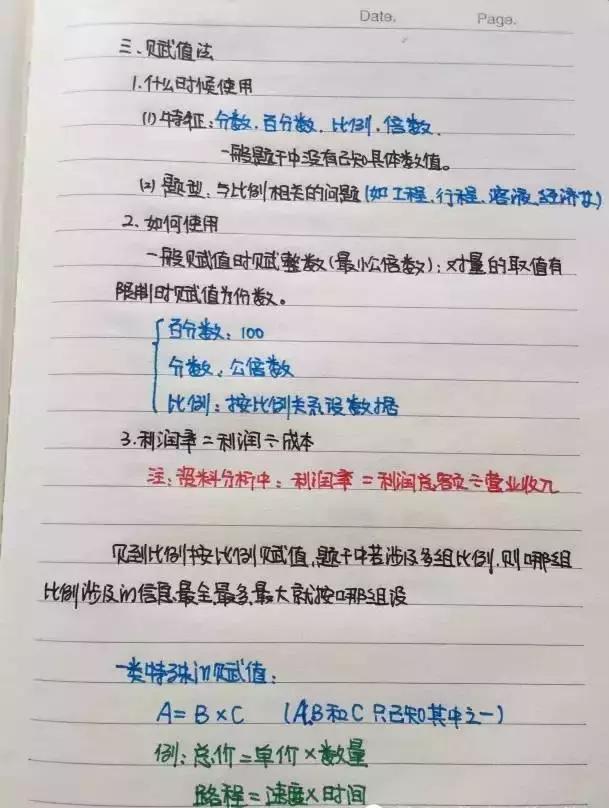 Date.    Page.
三、赋值法
1.什么时候使用
(1)特征:分数、百分数、比例、倍数、
一般题干中没有已知具体数值。
(2)题型:与比例相关的问题(如工程、行程、溶液、经济)
2.如何使用
一般赋值时赋整数(最小公倍数);对量的取值有
限制时赋值为份数。
百分数:100
分数:公倍数
比例:按比例关系设数据
3.利润率=利润÷成本
注:资料分析中:利润率=利润总额÷营业收入
见到比例按比例赋值,题干中若涉及多组比例,则哪组
比例涉及的信息最全、最多、最大就按哪组设
一类特殊的赋值:
A=B×C (A、B和C只已知其中之一)
例:总价=单价×数量
路程=速度×时间